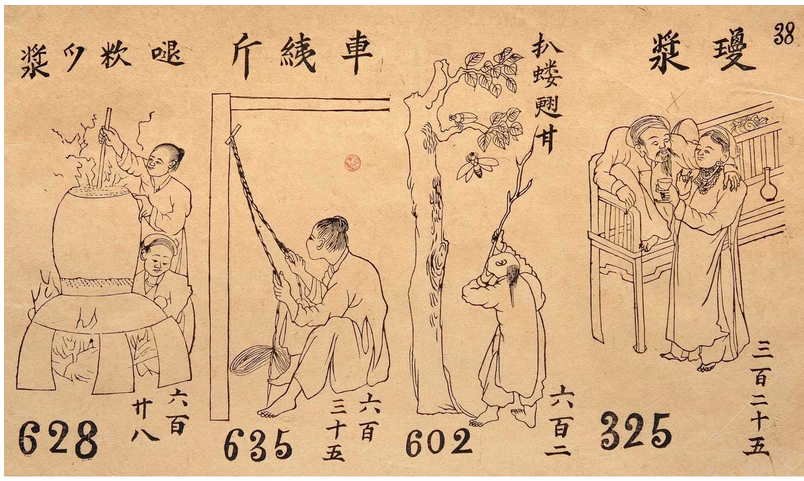 38
瓊漿
三百二十五
325
扒螻甘
六百二
602
車斤
六百
三十五
635
漿
六百
廿八
628